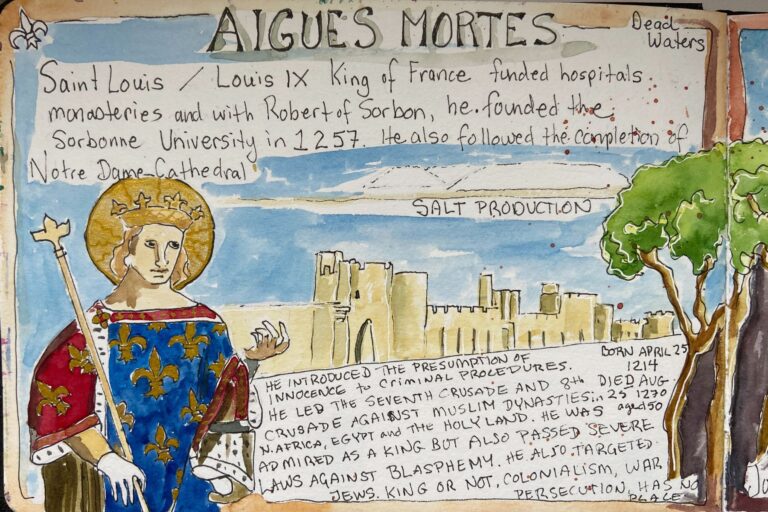 AIGUES MORTES
Dead
Waters
Saint Louis / Louis IX King of France funded hospitals
monasteries and with Robert of Sorbon, he founded the
Sorbonne University in 1257. He also followed the completion of
Notre Dame Cathedral
SALT PRODUCTION
HE INTRODUCED THE PRESUMPTION OF
INNOCENCE to CRIMINAL PROCEDURES.
HE LED THE SEVENTH CRUSADE AND 8th
CRUSADE AGAINST MUSLIM DYNASTIES in
N. AFRICA, EGYPT and THE HOLY LAND. HE WAS
ADMIRED AS A KING BUT ALSO PASSED SEVERE
LAWS AGAINST BLASPHEMY. HE ALSO TARGETED
JEWS. KING OR NOT, COLONIALISM, WAR
PERSECUTION, HAS NO
PLACE
BORN APRIL 25
1214
DIED AUG
25 1270
aged 50